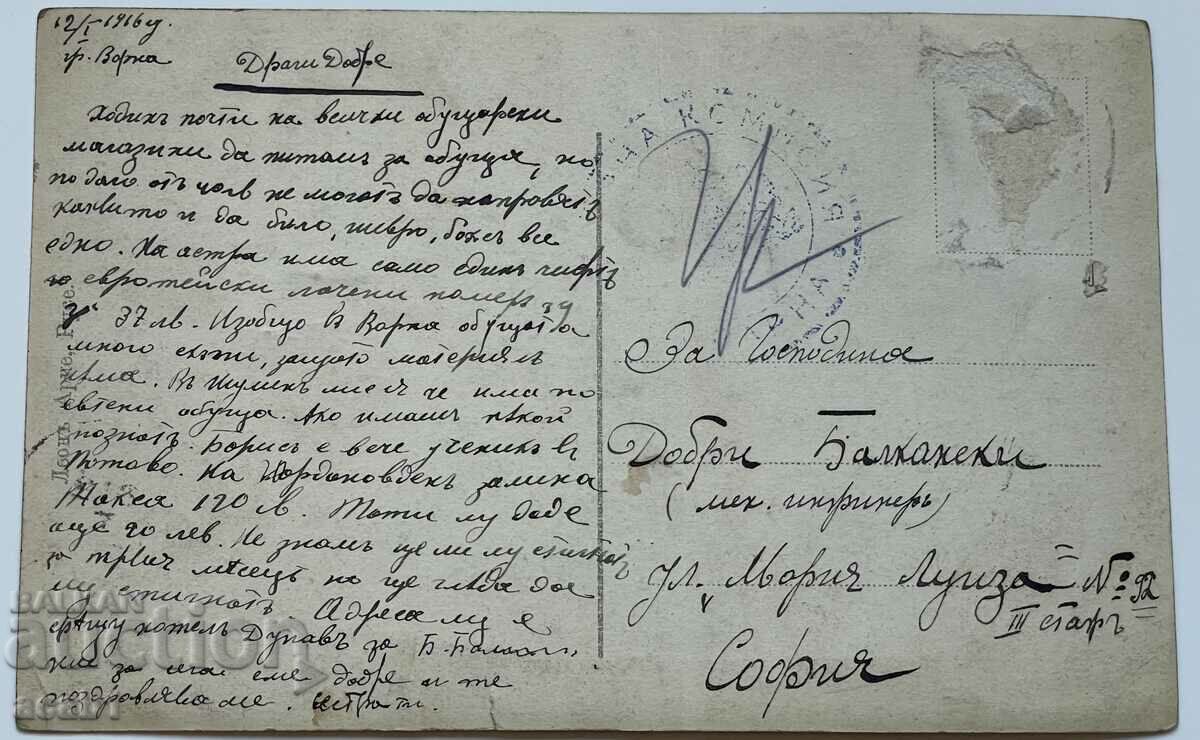 12/I 1916 г.
гр. Варна
Драги Добре
Ходихъ почти на всички обущарски
магазини да питамъ за обуща, но
по долу отъ лв не могатъ да направятъ
каквито и да било, шевро, боксъ все
едно. На Астра има само единъ чифтъ
европейски лачени номеръ 39
37 лв. Изобщо въ Варна обущата
много скѫпи, защото материялъ
нѣма. Въ Шуменъ мисля че има по
евтени обуща. Ако имашъ нѣкой
познатъ. Борисъ е вече ученикъ въ
На Йордановденъ замина
Такса 170 лв. Тати му даде
още 20 лев. Не знамъ дали му стигнатъ
първия месецъ но ще гледа да
му стигнатъ Адреса му е
срещу хотелъ Дунавъ за Б. Балкан.
Ние за сега сме добре и те
поздравляваме.
За Господина
Добри Балкански
(мех. инжинеръ)
ул. Мария Луиза № 92
III етажъ
София
НА КОМИСИЯ
Леонъ Арие, Русе.
BALKAN
auction
acari